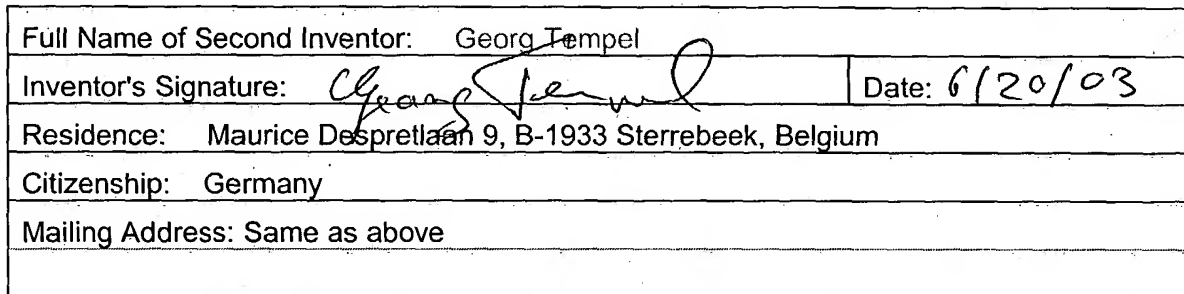 Full Name of Second Inventor: Georg Tempel
Inventor's Signature: Georg Tempel Date: 6/20/03
Residence: Maurice Despretlaan 9, B-1933 Sterrebeek, Belgium
Citizenship: Germany
Mailing Address: Same as above